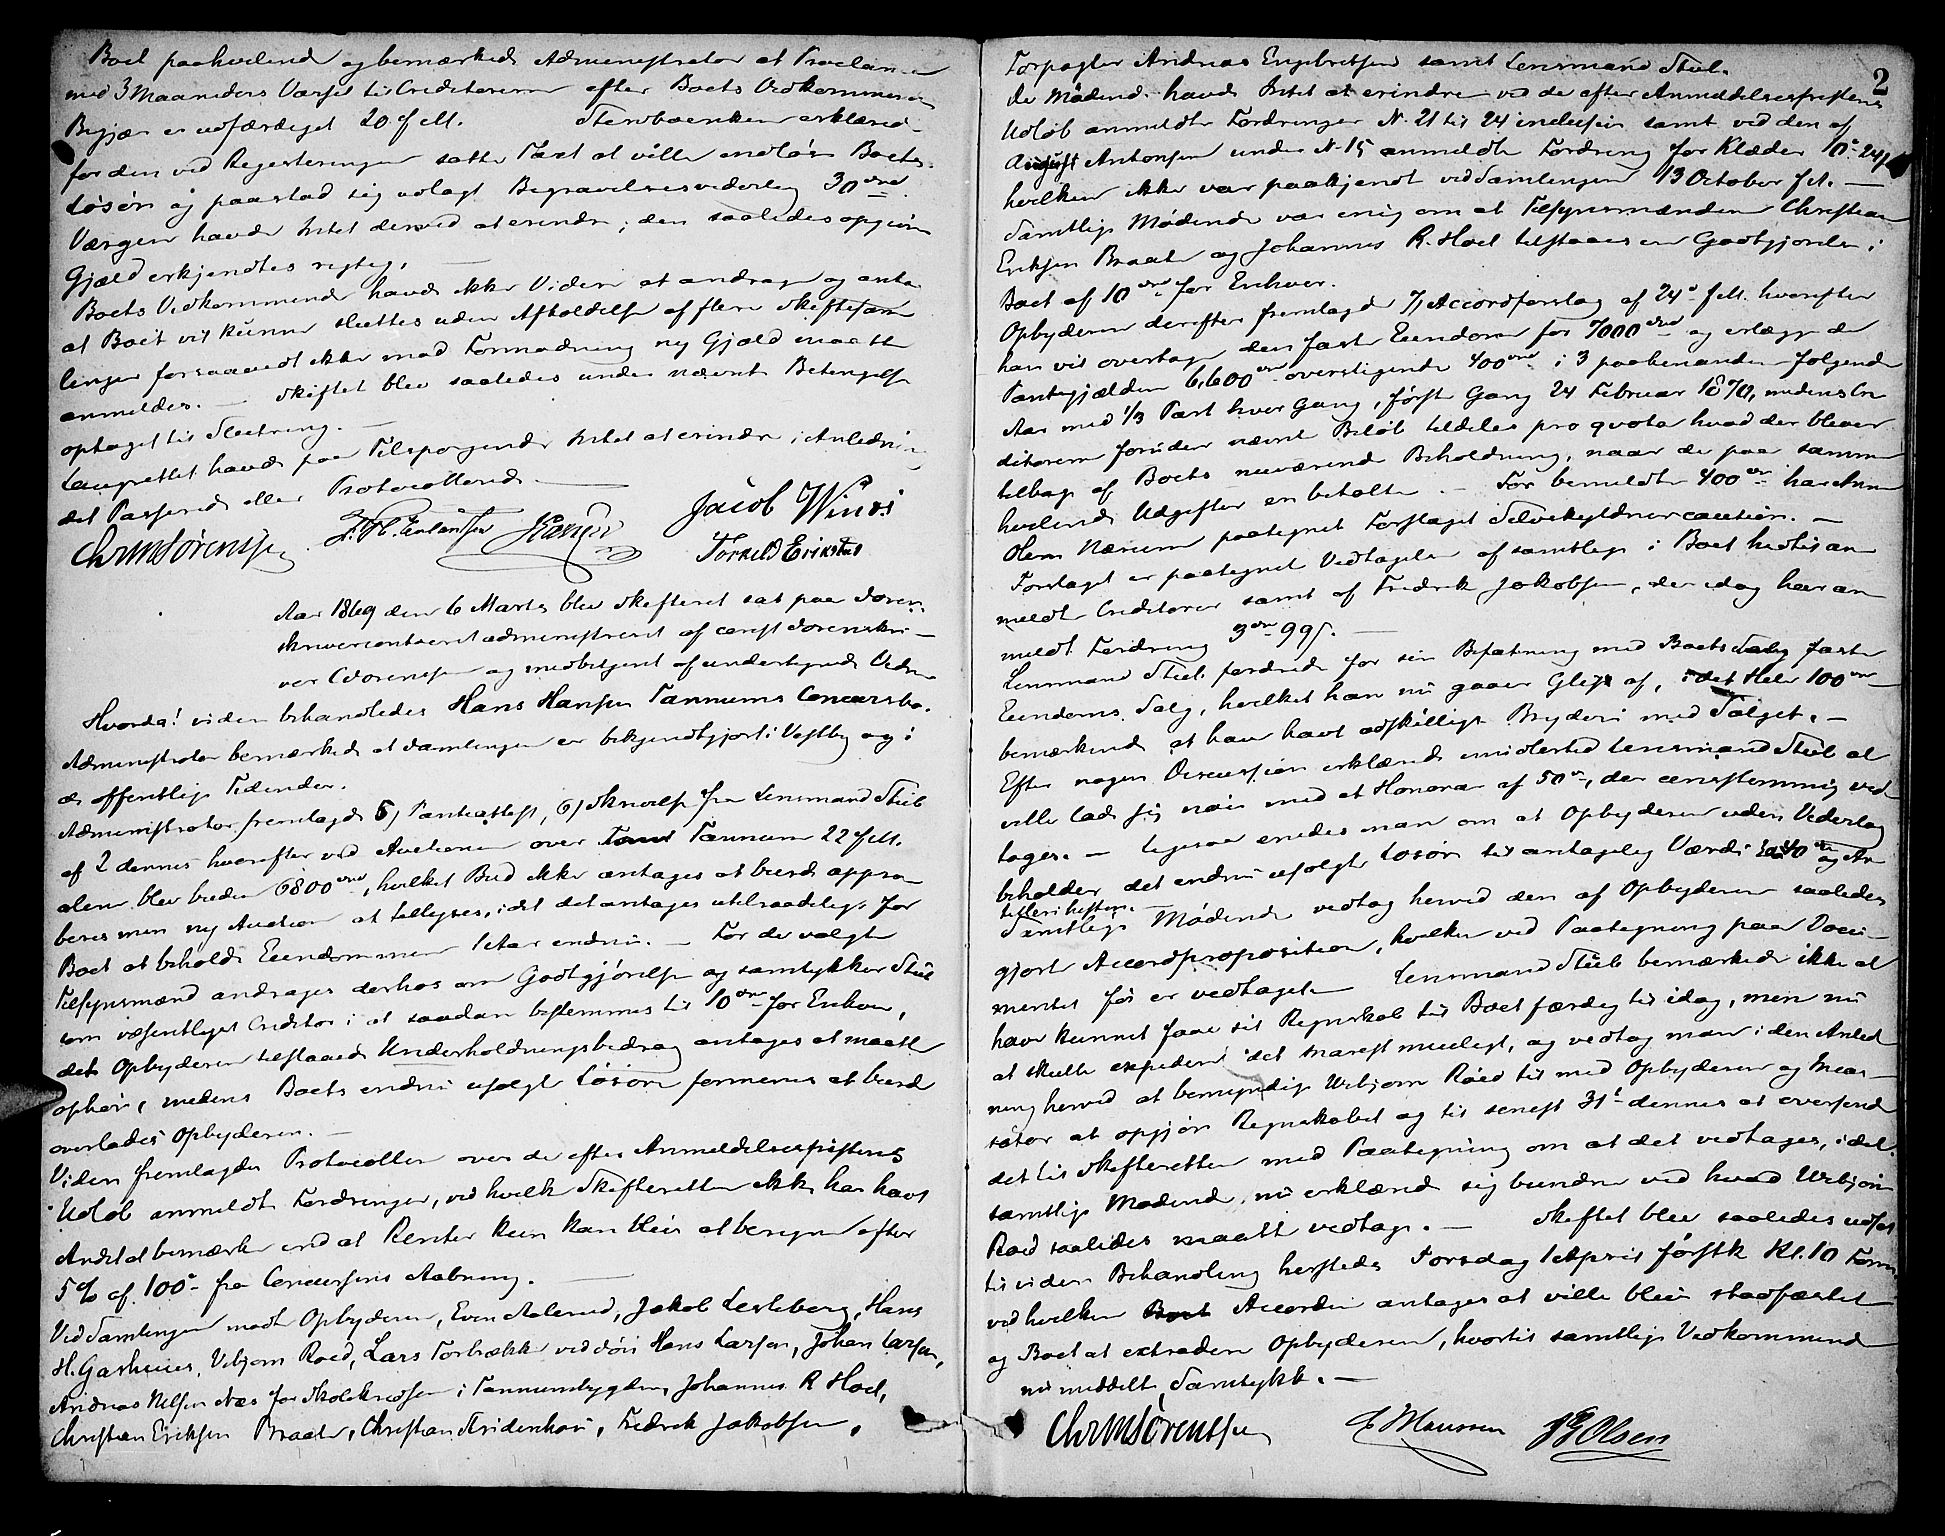 Boet paahvilende og bemærkede Administrator at Proclama
med 3 Maaneders Varsel til Creditorerne efter Boets Vedkommendes
Begjær er udfærdiget 20 f. M. Stervboenken erklærede
for den ved Registreringen satte Taxt at ville indløse Boets
Løsøre og paastod sig udlagt Begravelsesvederlag 30
Værgen havde Intet derved at erindre; den saaledes opgivne
Gjæld erkjendtes rigtig.
Boets Vedkommende havde ikke Videre at andrage og antog
at Boet vil kunne sluttes uden Afholdelse af flere Skiftesam
linger forsaavidt ikke mod Formodning ny Gjæld maatte
anmeldes. — Skiftet blev saaledes under nævnte Betingelse
optaget til Slutning. —
Laugrettet havde paa Tilspørgende Intet at erindre i Anledning
det Passerede eller Protocollerede.
Chr M Sørenssen Jacob Wines
Torkeld Erikstad
Aar 1869 den 6 Marts blev Skifteret sat paa Soren-
skrivercontoret administreret af const Sorenskri-
ver CSorenssen og medbetjent af undertegnede Vidner
Hvorda! videre behandledes Hans Hansen Tannums Concursbo.
Administrator bemærkede at Samlingen er bekjendtgjort i Vestby og i
de offentlige Tidender.
Administrator fremlagde 5) Panteattest, 6) Skrivelse fra Lensmand Stub
af 2 dennes hvorefter ved Auctionen over Tannum 22 f. M.
alene blev buden 6800, hvilket Bud ikke antages at burde appro-
beres men ny Auction at tillyses, idet det antages utilraadeligt for
Boet at beholde Eiendommen 1 Aar endnu. — For de valgte
Tilsynsmænd andrages derhos om Godtgjørelse og samtykker Stub
som væsentligst Creditor i at saadan bestemmes til 10 for Enhver,
det Opbyderen tilstaaede Underholdningsbidrag antages at maatte
ophøre, medens Boets endnu usolgte Løsøre formenes at burde
overlades Opbyderen. —
Videre fremlagdes Protocollen over de efter Anmeldelsesfristens
Udløb anmeldte Fordringer, ved hvilke Skifteretten ikke har havt
Andet at bemærke end at Renter kun kan blive at beregne efter
5% af 100 fra Concursens Aabning. —
Ved Samlingen mødte Opbyderen, Even Aalerud, Jakob Lesteberg, Hans
H. Garhuus, Vebjørn Roed, Lars Torbække ved Søn Hans Larsen, Johan Larsen,
Andreas Nilsen Næs for Skolekredsen i Tannumbygden, Johannes R Hoel,
Christian Eriksen Braate, Christian Aridenhou, Fredrik Jakobsen,
2
Forpagter Andreas Engebretsen samt Lensmand Stub.
De Mødende havde Intet at erindre ved de efter Anmeldelsesfristens
Udløb anmeldte Fordringer N. 21 til 24 inclusive samt ved den af
August Antonsen under N. 15 anmeldte Fordring for Klæder 10 24
hvilken ikke var paakjendt ved Samlingen 13 October f. A. —
Samtlige Mødende var enig om at Tilsynsmændene Christian
Eriksen Braate og Johannes R. Hoel tilstaaes en Godtgjørelse i
Boet af 10 for Enhver.
Opbyderen derefter fremlagde 7) Accordforslag af 24 f. M. hvorefter
han vil overtage den faste Eiendom for 7000 og erlægge de
Pantegjælden 6,600 overstigende 400 i 3 paa hinanden følgende
Aar med 1/3 Part hver Gang, første Gang 24 Februar 1870, medens Cre
ditorerne foruden nævnte Beløb tildeles pro qvota hvad der bliver
tilbage af Boets nuværende Beholdning, naar de paa samme
hvilende Udgifter er betalte. — For bemeldte 400 har
Herm Nærum paategnet Forslaget Selvskyldnercaution. —
Forslaget er paategnet Vedtagelse af samtlige i Boet hidtil an
meldte Creditorer samt af Fredrik Jakobsen, der idag har an
meldt Fordring 3 99.
Lensmand Stub fordrede for sin Befatning med Boets faste
Eiendoms Salg, hvilket han nu gaaer Glip af, i det Hele 100
bemærkende at han havt adskilligt Bryderi med Salget. —
Efter nogen Discussion erklærede imidlertid Lensmand Stub at
ville lade sig nøie med et Honorar af 50, der eenstemmig ved
toges. — Ligesaa enedes man om at Opbyderen uden Vederlag
beholder det endnu usolgte Løsøre til antagelig Værdi 40 og An
tellerihesten.
Samtlige Mødende vedtog herved den af Opbyderen saaledes
gjorte Accordproposition, hvilken ved Paategning paa Docu-
mentet før er vedtaget. Lensmand Stub bemærkede ikke at
have kunnet faae sit Regnskab til Boet færdig til idag, men nu
at skulle expedere det snarest mueligt, og vedtog man i den Anled
ning herved at bemyndige Vebjørn Roed til med Opbyderen og Incas-
sator at opgjøre Regnskabet og til senest 31 dennes at oversende
det til Skifteretten med Paategning om at det vedtages, idet
samtlige Mødende nu erklærede sig bundne ved hvad Vebjørn
Roed saaledes maatte vedtage. — Skiftet blev saaledes udsat
til videre Behandling hersteds Torsdag 1 April førstk. Kl. 10 Form.
ved hvilken Accorden antages at ville blive stadfæstet
og Boet at extradere Opbyderen, hvortil samtlige Vedkommende
nu meddelte Samtykke. —
Chr M Sørenssen Maussen Olsen